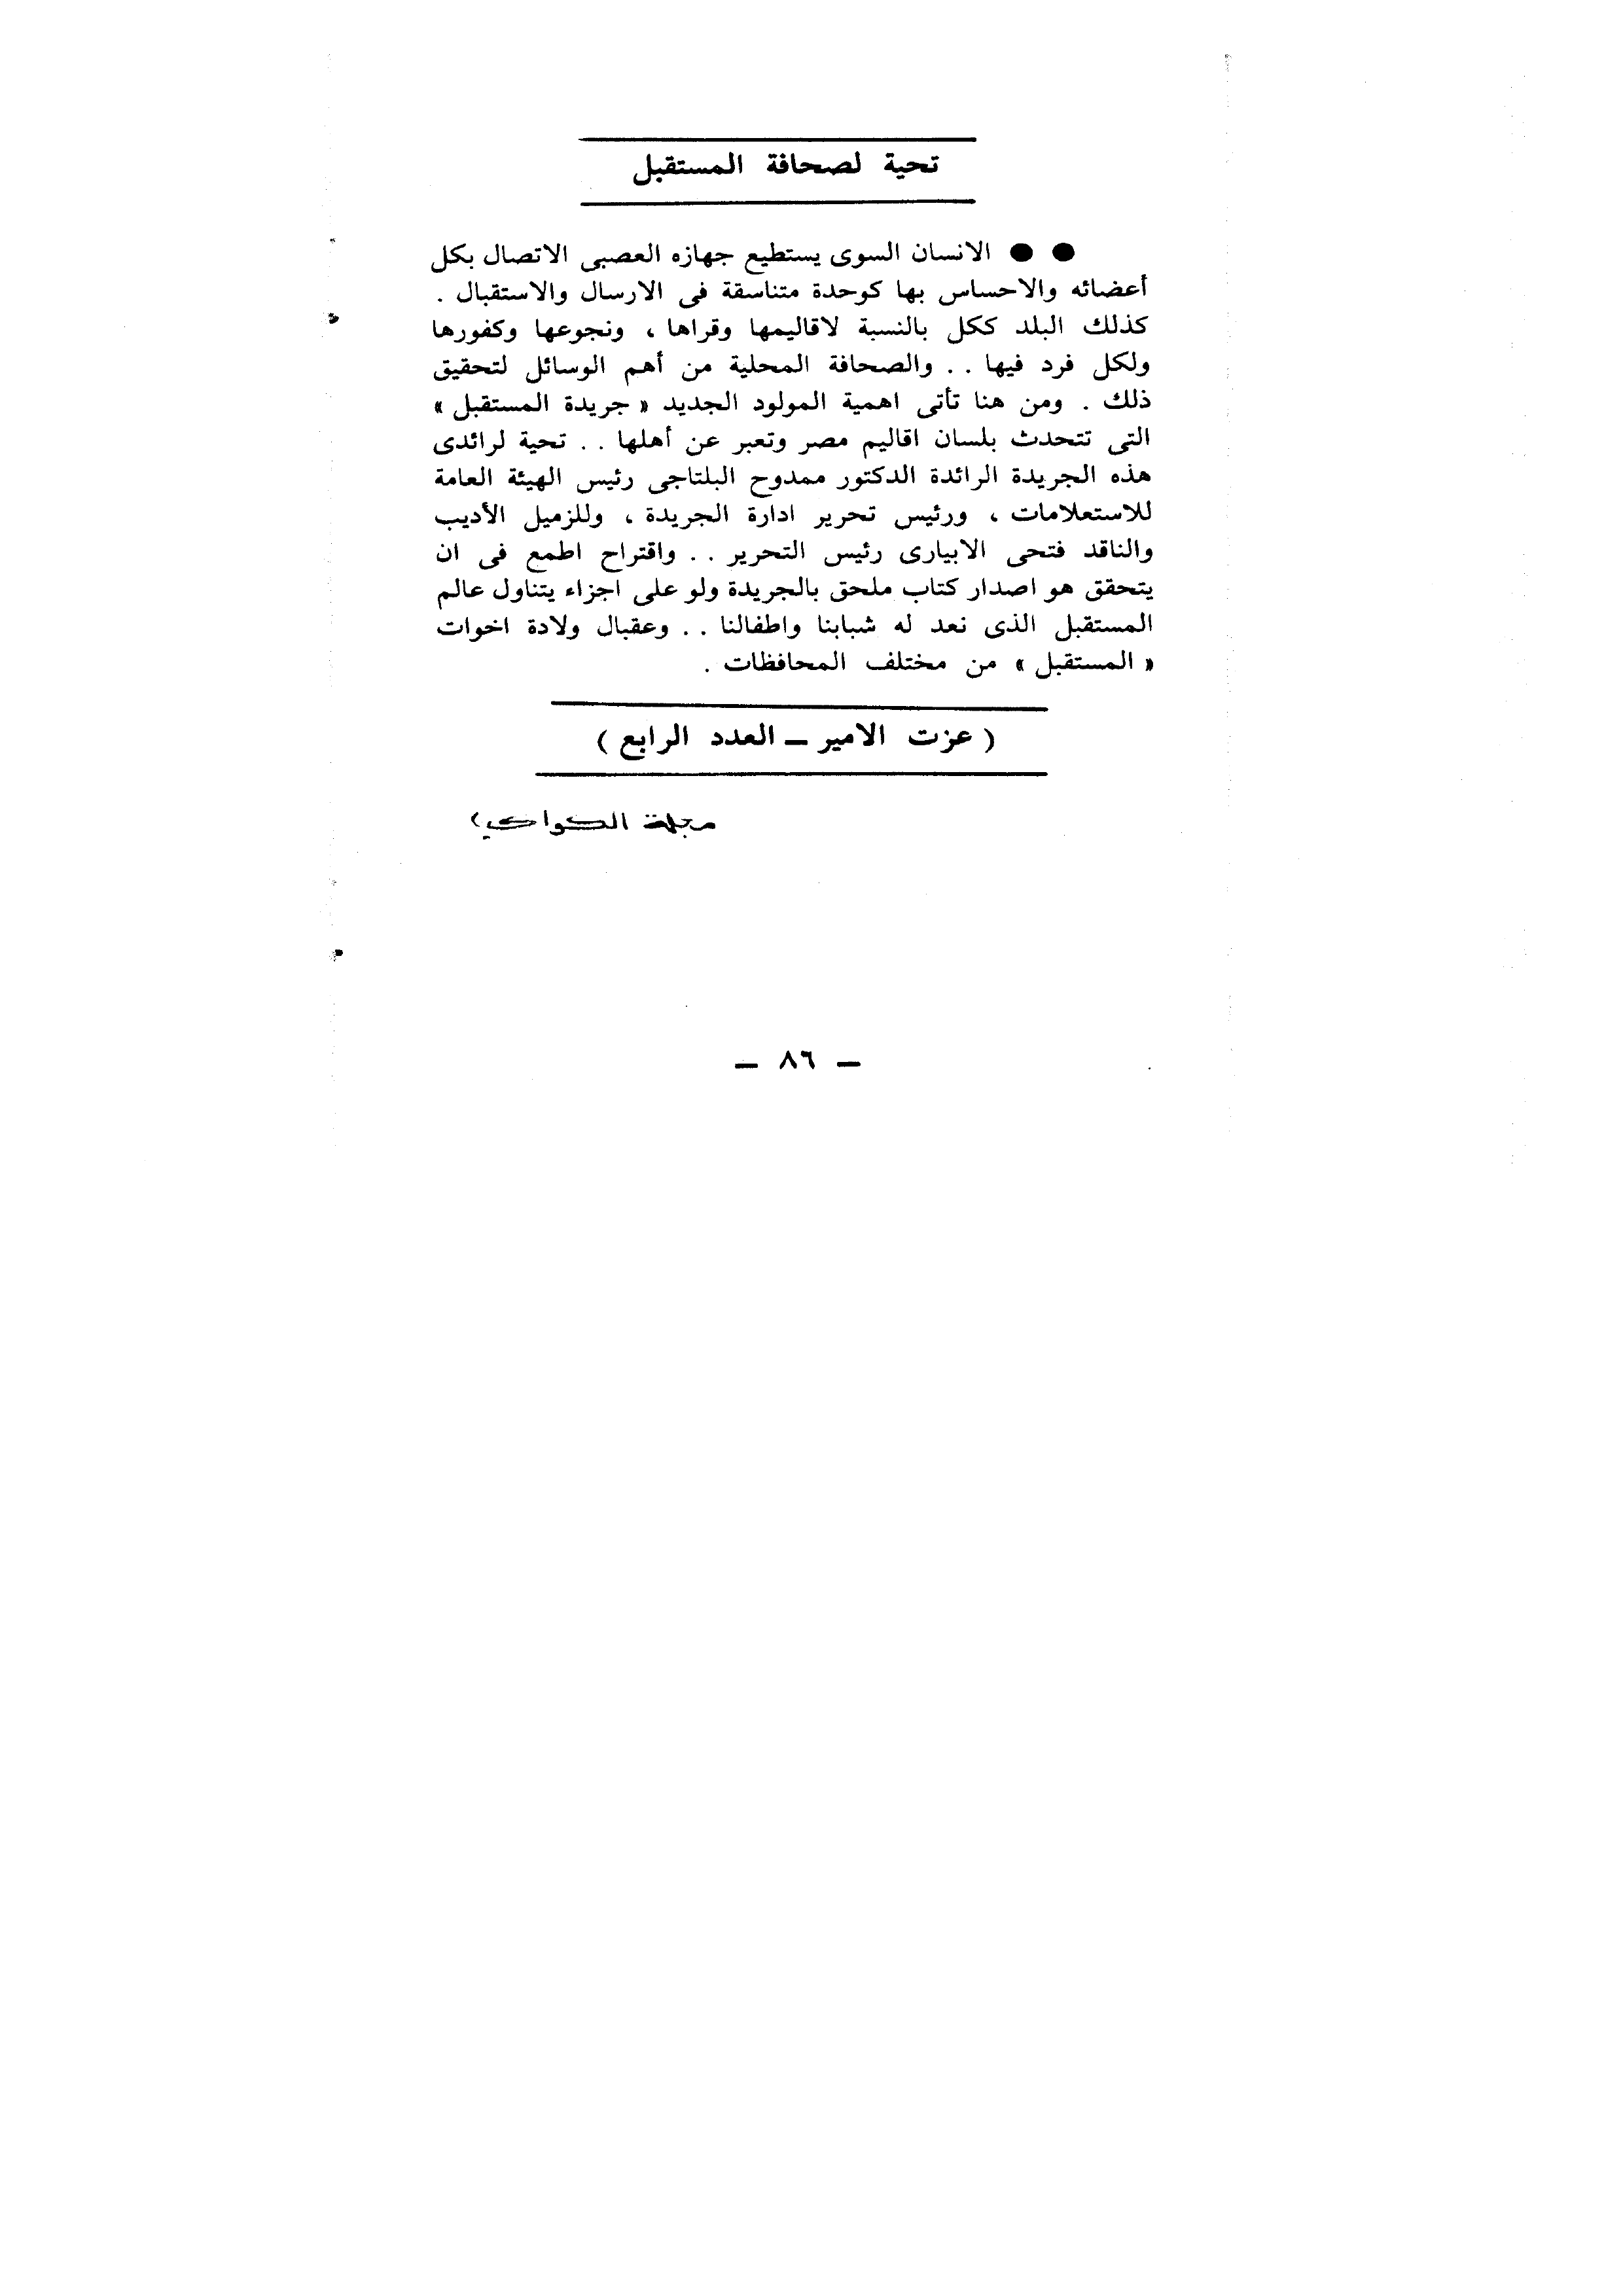 تحية لصحافة المستقبل
●● الانسان السوى يستطيع جهازه العصبى الاتصال بكل
أعضائه والاحساس بها كوحدة متناسقة فى الارسال والاستقبال .
كذلك البلد ككل بالنسبة لاقاليمها وقراها ، ونجوعها وكفورها
ولكل فرد فيها . . والصحافة المحلية من أهم الوسائل لتحقيق
ذلك . ومن هنا تأتى اهمية المولود الجديد « جريدة المستقبل »
التى تتحدث بلسان اقاليم مصر وتعبر عن أهلها . . تحية لرائدى
هذه الجريدة الرائدة الدكتور ممدوح البلتاجى رئيس الهيئة العامة
للاستعلامات ، ورئيس تحرير ادارة الجريدة ، وللزميل الأديب
والناقد فتحى الابيارى رئيس التحرير . . واقتراح اطمع فى ان
يتحقق هو اصدار كتاب ملحق بالجريدة ولو على اجزاء يتناول عالم
المستقبل الذى نعد له شبابنا واطفالنا . . وعقبال ولادة اخوات
« المستقبل » من مختلف المحافظات .
( عزت الامير – العدد الرابع )
مجلة
– ٨٦ –